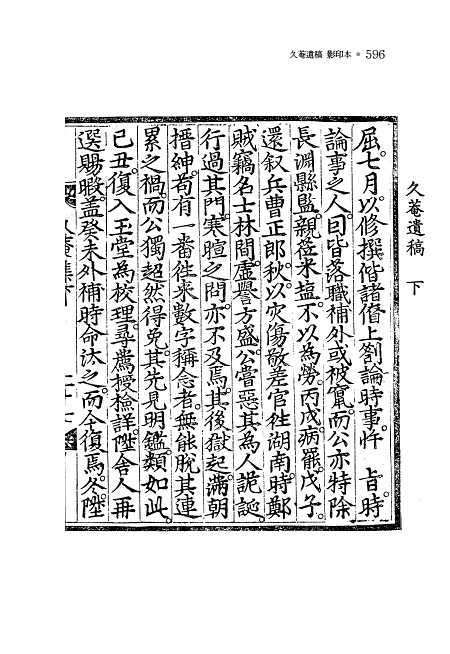 久菴遺稿 影印本 ● 596
久菴遺稿 下
屈。七月。以修撰偕諸僚上劄論時事。忤 旨。時
論事之人。曰皆落職補外或被竄。而公亦特除
長淵縣監。親莅米塩。不以為勞。丙戌病罷。戊子。
還叙兵曹正郎。秋。以灾傷敬差官往湖南。時鄭
賊竊名士林間。虛譽方盛。公嘗惡其為人詭誕。
行過其門。寒暄之問。亦不及焉。其後獄起。滿朝
搢紳。苟有一番往來數字稱念者。無能脫其連
累之禍。而公獨超然得免。其先見明鑑。類如此。
己丑。復入玉堂為校理。尋薦授檢詳陞舍人。再
選賜暇。盖癸未外補時命汰之。而仝復焉。冬。陞